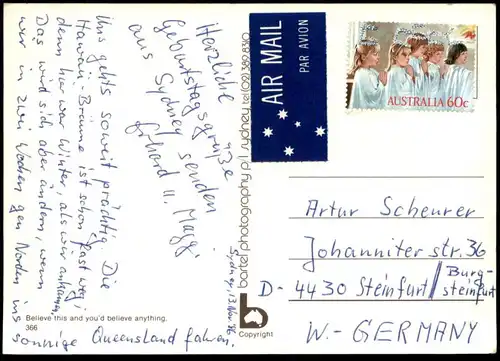 Herzliche
Geburtstagsgrüße
aus Sydney senden
Erhard u. Maggi
Uns gehts soweit prächtig. Die
Hawaii-Bräune ist schon fast weg,
denn hier war Winter, als wir ankamen.
Das wird sich aber ändern, wenn
wir in zwei Wochen gen Norden ins
sonnige Queensland fahren.
Sydney, 13. Nov. 86
Believe this and you'd believe anything.
366
bartel photography p/l sydney tel (02) 389 8310
b
Copyright
AIR MAIL
PAR AVION
AUSTRALIA 60c
Artur Scheurer
Johanniter str. 36
D- 4430 Steinfurt/Burg-
steinfurt
W.- GERMANY